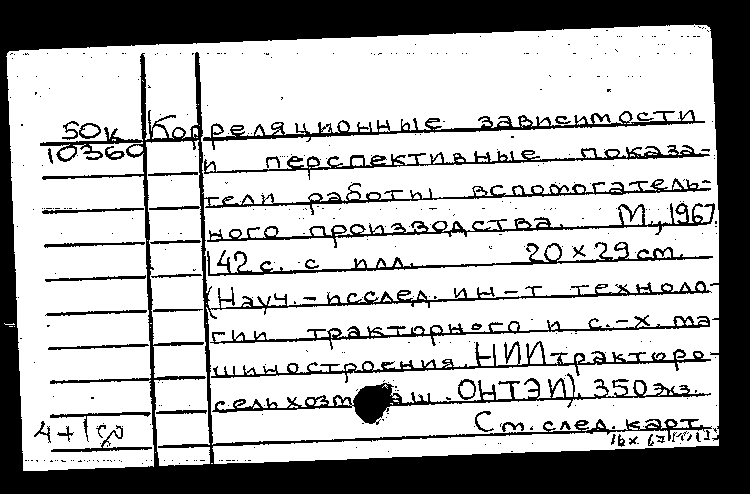 50к Корреляционные зависимости
10360 и перспективные показа-
тели работы вспомогатель-
ного производства. М., 1967.
142 с. с илл. 20 х 29 см.
(Науч.-исслед. ин-т техноло-
гии тракторного и с.-х. ма-
шиностроения. НИИтракторо-
сельхозмаш. ОНТЭИ). 350 экз.
4+1 Ст. след. карт.